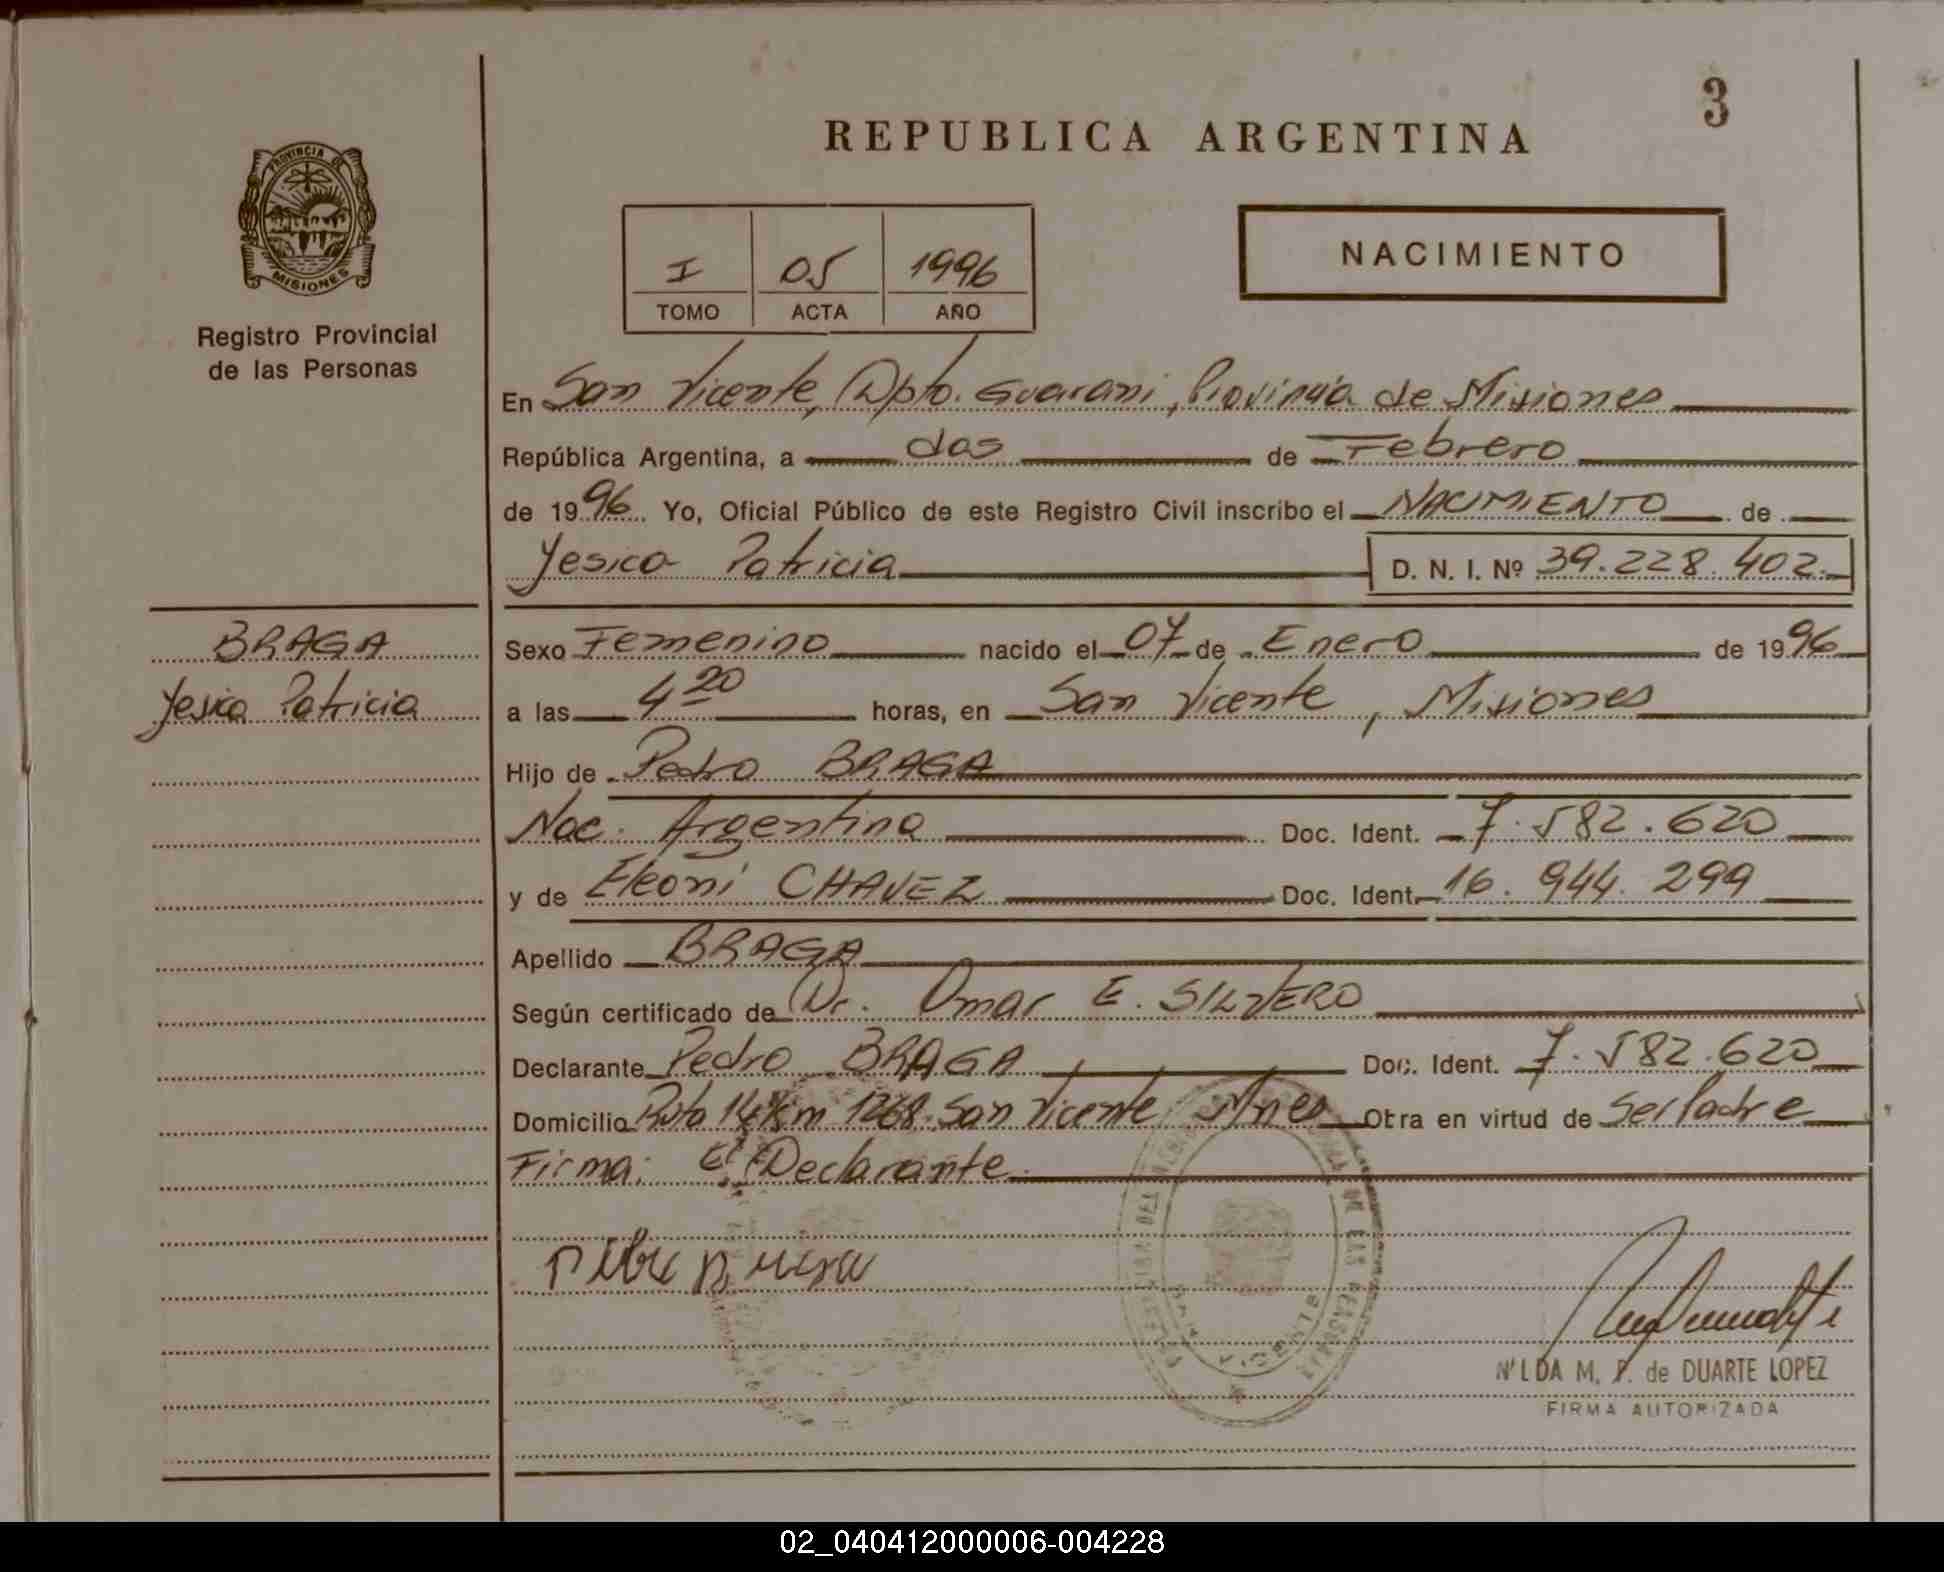 3
REPUBLICA ARGENTINA
PROVINCIA DE
MISIONES
Registro Provincial
de las Personas
I 05 1996
TOMO ACTA AÑO
NACIMIENTO
En San Vicente, Dpto. Guarani, Provincia de Misiones
República Argentina, a dos de Febrero
de 1996. Yo, Oficial Público de este Registro Civil inscribo el NACIMIENTO de
Yesica Patricia D. N. I. Nº 39.228.402.
BRAGA
Yesica Patricia
Sexo Femenino nacido el 07 de Enero de 1996
a las 4 20 horas, en San Vicente, Misiones
Hijo de Pedro BRAGA
Nac. Argentina Doc. Ident. 7.582.620
y de Eleoni CHAVEZ Doc. Ident. 16.944.299
Apellido BRAGA
Según certificado de Dr. Omar E. SILVERO
Declarante Pedro BRAGA Doc. Ident. 7.582.620
Domicilio Ruta 14 Km 1268 San Vicente Mnes Otra en virtud de Ser Padre
Firma: El Declarante
NILDA M. P. de DUARTE LOPEZ
FIRMA AUTORIZADA
02_040412000006-004228